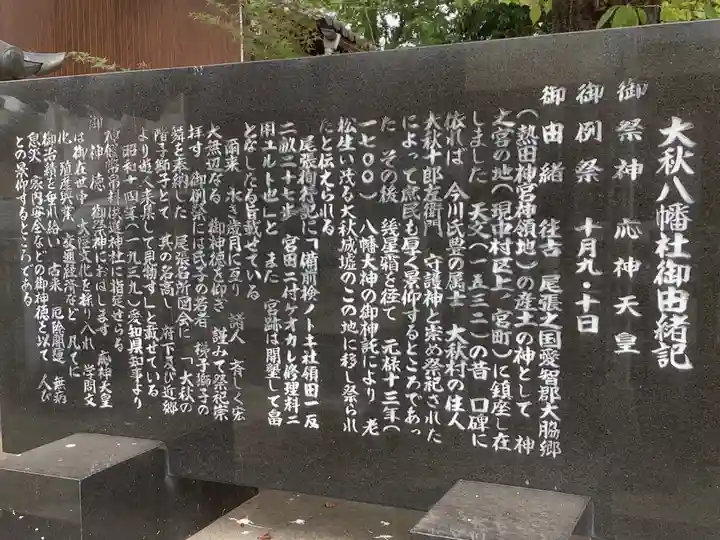 大秋八幡社御由緒記
御祭神 応神天皇
御例祭 十月九・十日
御由緒 往古 尾張之国愛智郡大脇郷
(熱田神宮神領地)の産土の神として 神
之宮の地(現中村区上ノ宮町)に鎮座し在
しました 天文(一五三二)の昔 口碑に
依れば 今川氏豊の属士 大秋村の住人
大秋十郎左衛門 守護神と崇め祭祀された
によって庶民も厚く景仰するところであっ
た その後 幾星霜を往て 元禄十三年(
一七〇〇) 八幡大神の御神託により 老
松生い茂る大秋城墟のこの地に移し祭られ
たと伝えられる
尾張徇行記に「備前検ノト主社領田一反
二畝二十七歩 宮田ニ付ケオカレ修理料ニ
用エルト也」と また 宮跡は開墾して畠
となしたる旨載せている
爾来 永き歳月に亙り 諸人 斉しく宏
大無辺なる 御神徳を仰ぎ 謹みて祭祀崇
拝す 御例祭には氏子の若者 梯子獅子の
芸を奉納した 尾張名所図会に「大秋の
階子獅子とて 其の名高し 府下及び近郷
より遊人来集して見物す」と載せている
昭和十四年(一九三九)愛知県知事より
神饌幣帛料供進神社に指定せらる
御神徳 御祭神におはします 応神天皇
は御在世中 大陸文化を採り入れ 学問文
化 殖産興業 交通経済など 凡てに
御治績を垂れ給い 古来 厄除開運 無病
息災 家内安全などの御神徳を以て 人び
との景仰するところである